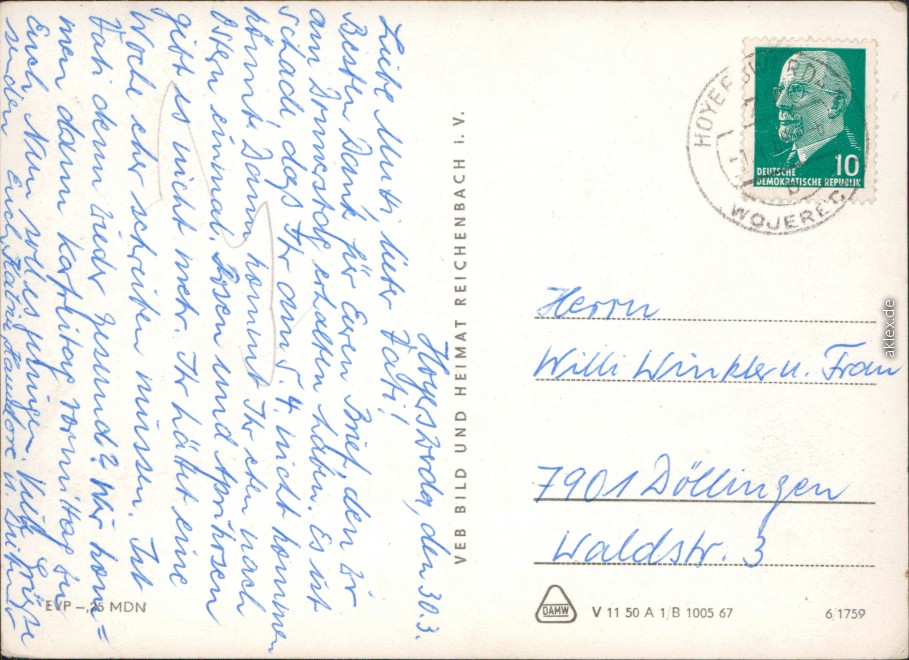 Hoyerswerda, den 30.3.
Liebe Mutti lieber Vati!
Besten Dank für Euren Brief, den wir
am Donnerstag erhalten haben. Es ist
Schade das Ihr am 5.4. nicht kommen
könnt. Dann kommt Ihr eben nach
Ostern einmal. Rosen und Aprikosen
gibt es nicht mehr. Ihr hätet eine
Woche eher schreiben müssen. Ist
Vati denn wieder gesund? Wir kom=
men dann Karfreitag vormittag zu
Euch. Nun soll es genügen. Viele Grüße
senden Euch
EVP –,25 MDN
VEB BILD UND HEIMAT REICHENBACH i. V.
HOYERSWERDA
WOJEREC
10
DEUTSCHE
DEMOKRATISCHE REPUBLIK
Herrn
Willi Winkler u. Frau
7901 Döllingen
Waldstr. 3
DAMW
V 11 50 A 1/B 1005 67
6/1759
aklex.de